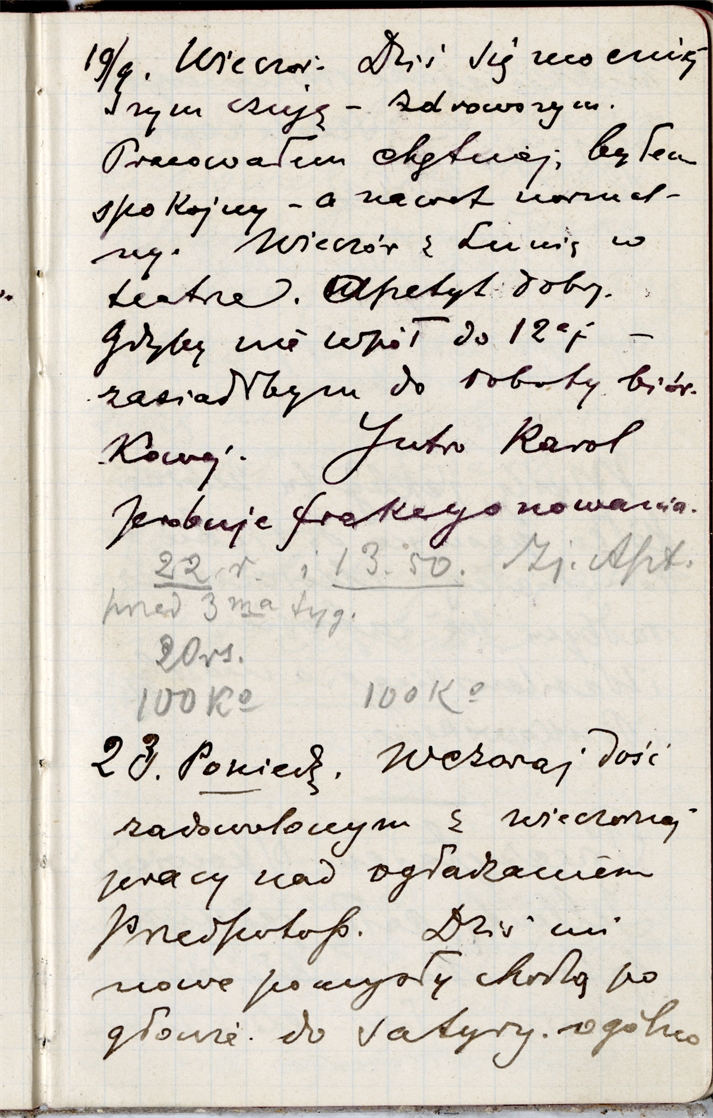 19/9. Wieczór. Dziś się mocniej
szym czuję – zdrowszym.
Pracowałem chętniej, byłem
spokojny – a nawet normal-
ny. Wieczór z Lunią w
teatrze. Apetyt dobry.
Gdyby nie wpół do 12ej –
zasiadłbym do roboty biór-
kowej. Jutro Karol
próbuje frakcyonowania.
22 r. i 13.50. Apt.
przed 3ma tyg.
20 rs.
100 Ko 100 Ko
23. Poniedz. Wczoraj dość
zadowolonym z wieczornej
pracy nad ogładzaniem
Przedpotop. Dziś mi
nowe pomysły chodzą po
głowie do satyry. ogólno